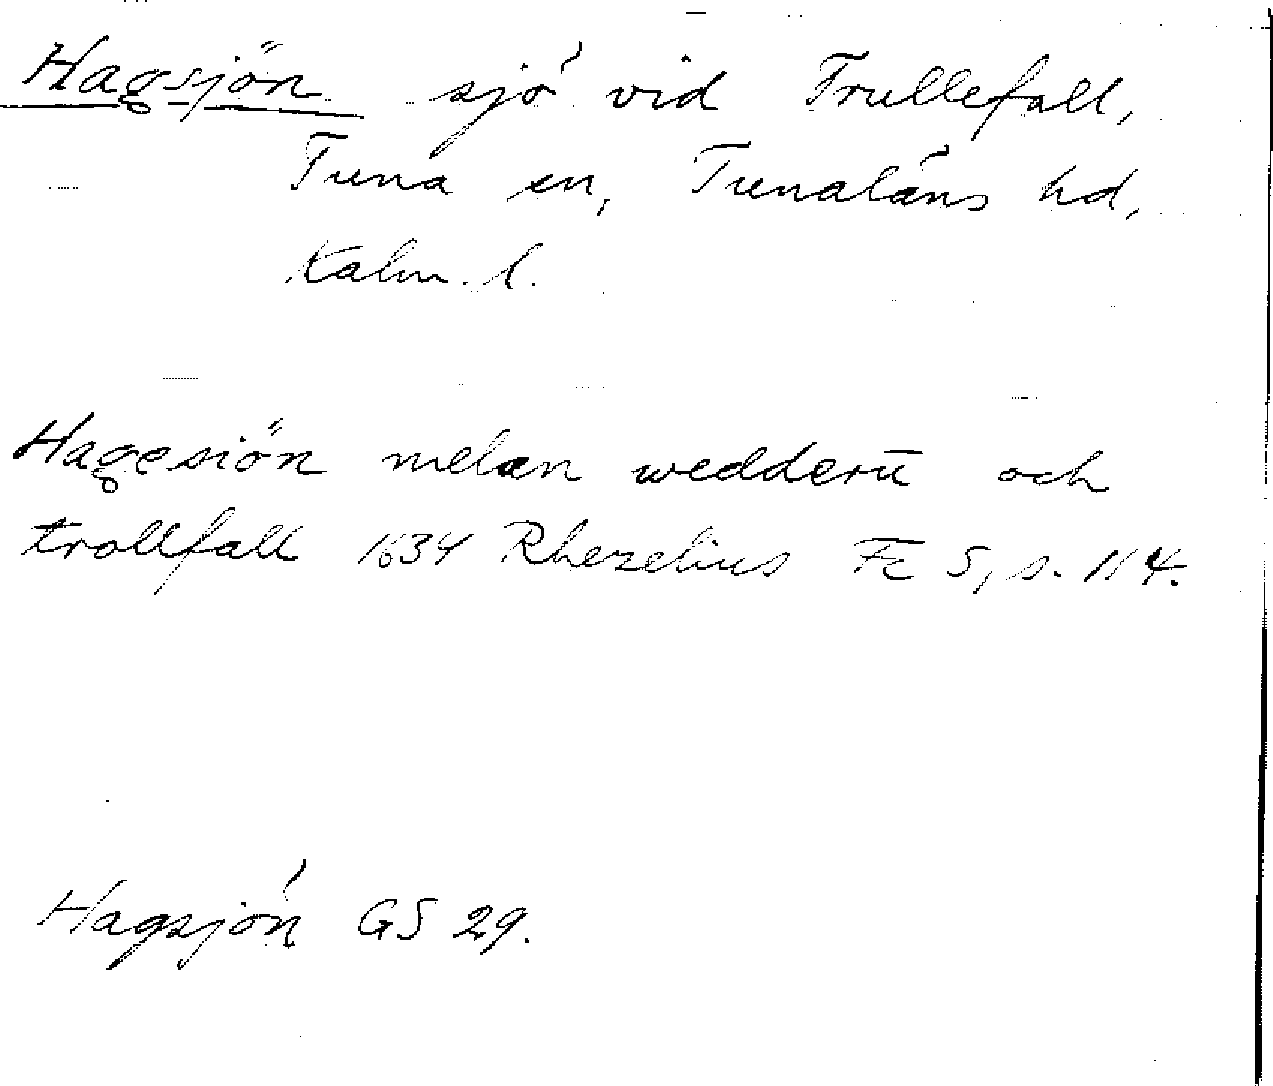 Hagsjön sjö vid Trullefall,
Tuna sn, Tunaläns hd,
Kalm. l.
Hagesiön melan wedderū och
trollfall 1634 Rhezelius Fc 5, s. 114.
Hagsjön GS 29.